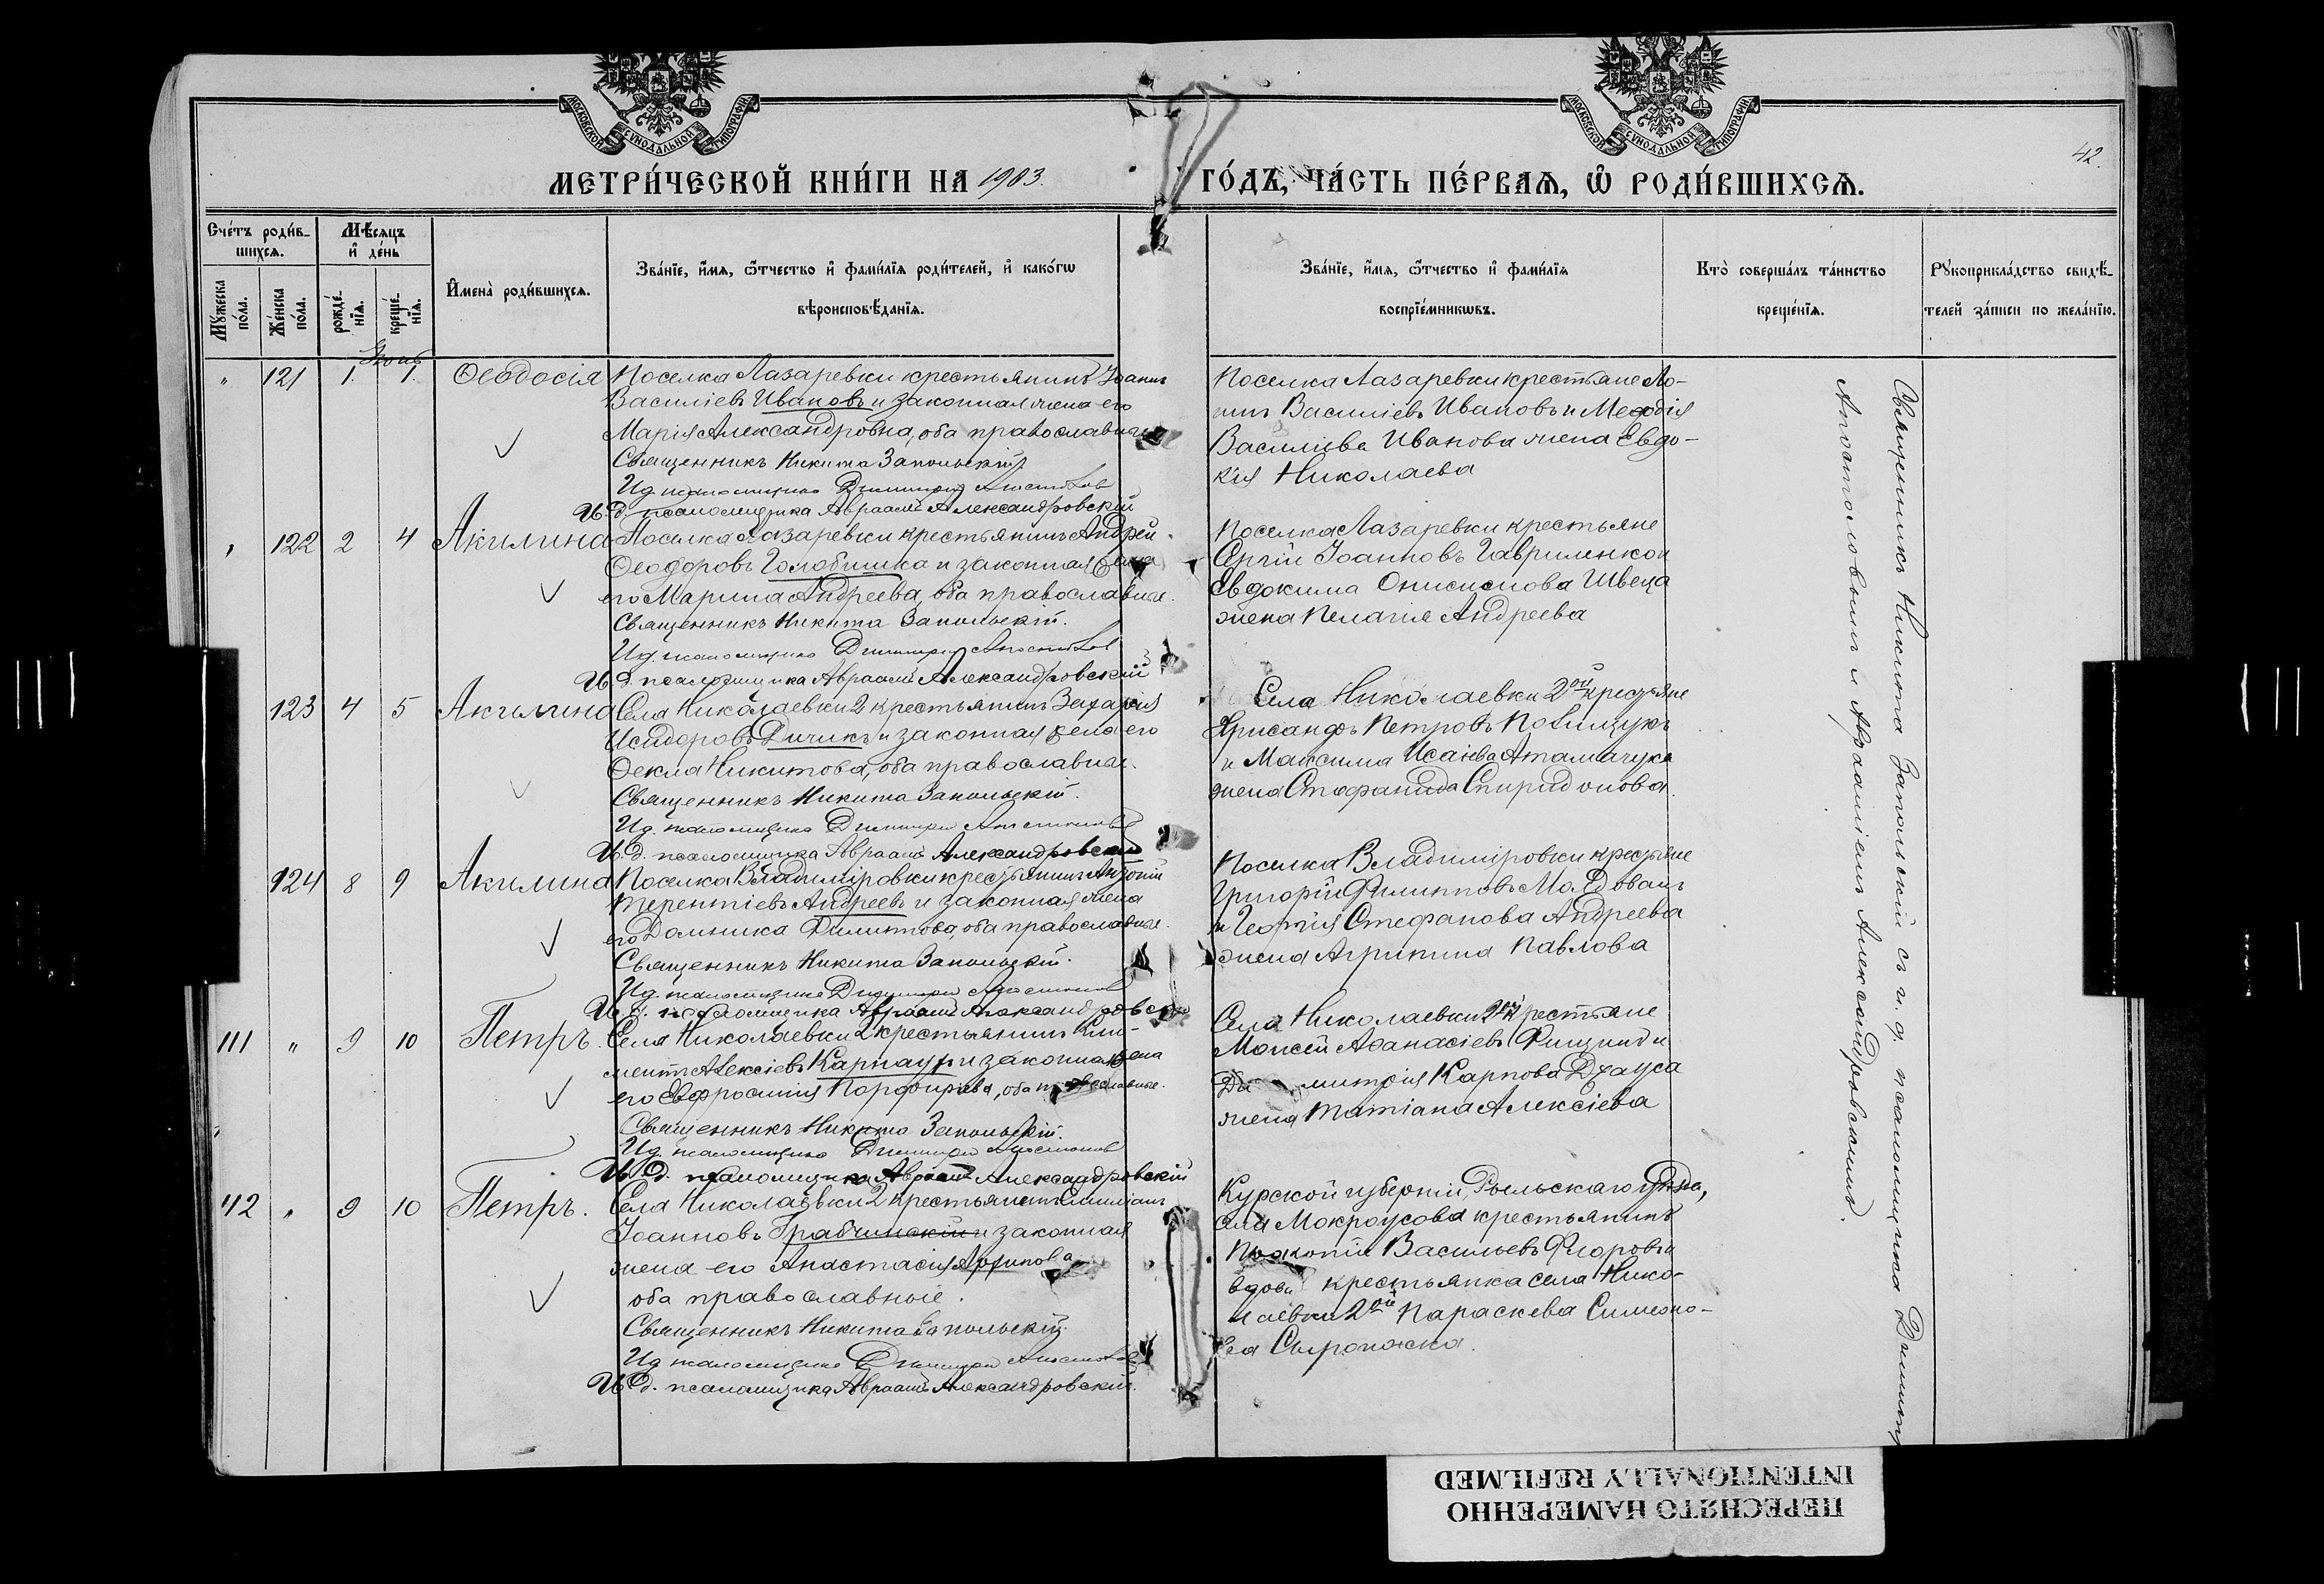 МОСКОВСКОЙ СУНОДАЛЬНОЙ ТИПОГРАФІИ
МОСКОВСКОЙ СУНОДАЛЬНОЙ ТИПОГРАФІИ
42.
МЕТРИ́ЧЕСКОЙ КНИ́ГИ НА 1903.
ГО́ДЪ, ЧА́СТЬ ПЕ́РВАЯ, Ѡ҆ РОДИ́ВШИХСЯ.
Сче́тъ роди́в-
шихся.
Мѣ́сяцъ
и҆ де́нь
Му́жеска по́ла.
Же́нска по́ла.
рожде́-нїя.
креще́-нїя.
И҆мена̀ роди́вшихся.
Зва́нїе, и҆́мя, ѻ҆́тчество и҆ фами́лїя роди́телей, и҆ како́гѡ
вѣроисповѣ́данїя.
Зва́нїе, и҆́мя, ѻ҆́тчество и҆ фами́лїя
воспрїе́мникѡвъ.
Кто̀ соверша́лъ та́инство
креще́нїя.
Рꙋкоприкла́дство свидѣ́-
телей за́писи по жела́нїю.
Іюнь
" 121 1. 1. Ѳеодосія
Поселка Лазаревки крестьянинъ Іоаннъ
Василіевъ Ивановъ и законная жена его
Марія Александровна, оба православные
Священникъ Никита Запольскій
И.д. псаломщика Димитрій Апостолов
И.д. псаломщика Авраамій Александровскій
Поселка Лазаревки крестьяне Ло-
гинъ Василіевъ Ивановъ и Меѳодія
Василіева Иванова жена Евдо-
кія Николаева
" 122 2 4 Акилина
Поселка Лазаревки крестьянинъ Андрей
Ѳеодоровъ Голобишка и законная жена
его Марина Андреева, оба православные.
Священникъ Никита Запольскій.
И.д. псаломщика Димитрій Апостолов
И.д. псаломщика Авраамій Александровскій
Поселка Лазаревки крестьяне
Сергій Іоанновъ Гавриленко и
Евдокима Онисимова Швеца
жена Пелагія Андреева
123 4 5 Акилина
Села Николаевки 2 крестьянинъ Захарія
Исидоровъ Дичикъ и законная жена его
Ѳекла Никитова, оба православные.
Священникъ Никита Запольскій.
И.д. псаломщика Димитрій Апостолов
И.д. псаломщика Авраамій Александровскій
Села Николаевки 2ой крестьяне
Хрисанѳъ Петровъ Полищукъ
и Максима Исаіева Атаманчука
жена Стефанида Спиридонова.
124 8 9 Акилина
Поселка Владиміровки крестьянинъ Антоній
Терентіевъ Андреевъ и законная жена
его Домника Филиппова, оба православные.
Священникъ Никита Запольскій.
И.д. псаломщика Димитрій Апостолов
И.д. псаломщика Авраамій Александровскій
Поселка Владиміровки крестьяне
Григорій Филипповъ Молдованъ
и Георгія Стефанова Андреева
жена Агрипина Павлова
111 " 9 10 Петръ.
Села Николаевки 2 крестьянинъ Кли-
ментъ Алексіевъ Карнаухъ и законная жена
его Евфросинія Порфирьева, оба православные.
Священникъ Никита Запольскій.
И.д. псаломщика Димитрій Апостолов
И.д. псаломщика Авраамій Александровскій
Села Николаевки 2ой крестьяне
Моисей Аѳанасіевъ и
Димитрія Карпова
жена Татіана Алексіева
112 " 9 10 Петръ.
Села Николаевки 2 крестьянинъ Емиліанъ
Іоанновъ Грабчинскій и законная
жена его Анастасія
оба православные.
Священникъ Никита Запольскій
И.д. псаломщика Димитрій Апостолов
И.д. псаломщика Авраамій Александровскій.
Курской губерніи, Рыльскаго уѣзда,
села Мокроусова крестьянинъ
Прокопій Васильевъ Флоровъ и
вдова крестьянка села Нико-
лаевки 2ой Параскева Симеоно-
ва
Священникъ Никита Запольскій съ и. д. псаломщика Димитр
Апостоловымъ и Аврааміемъ Александровскимъ.
ПЕРЕСНЯТО НАМЕРЕННО
INTENTIONALLY REFILMED